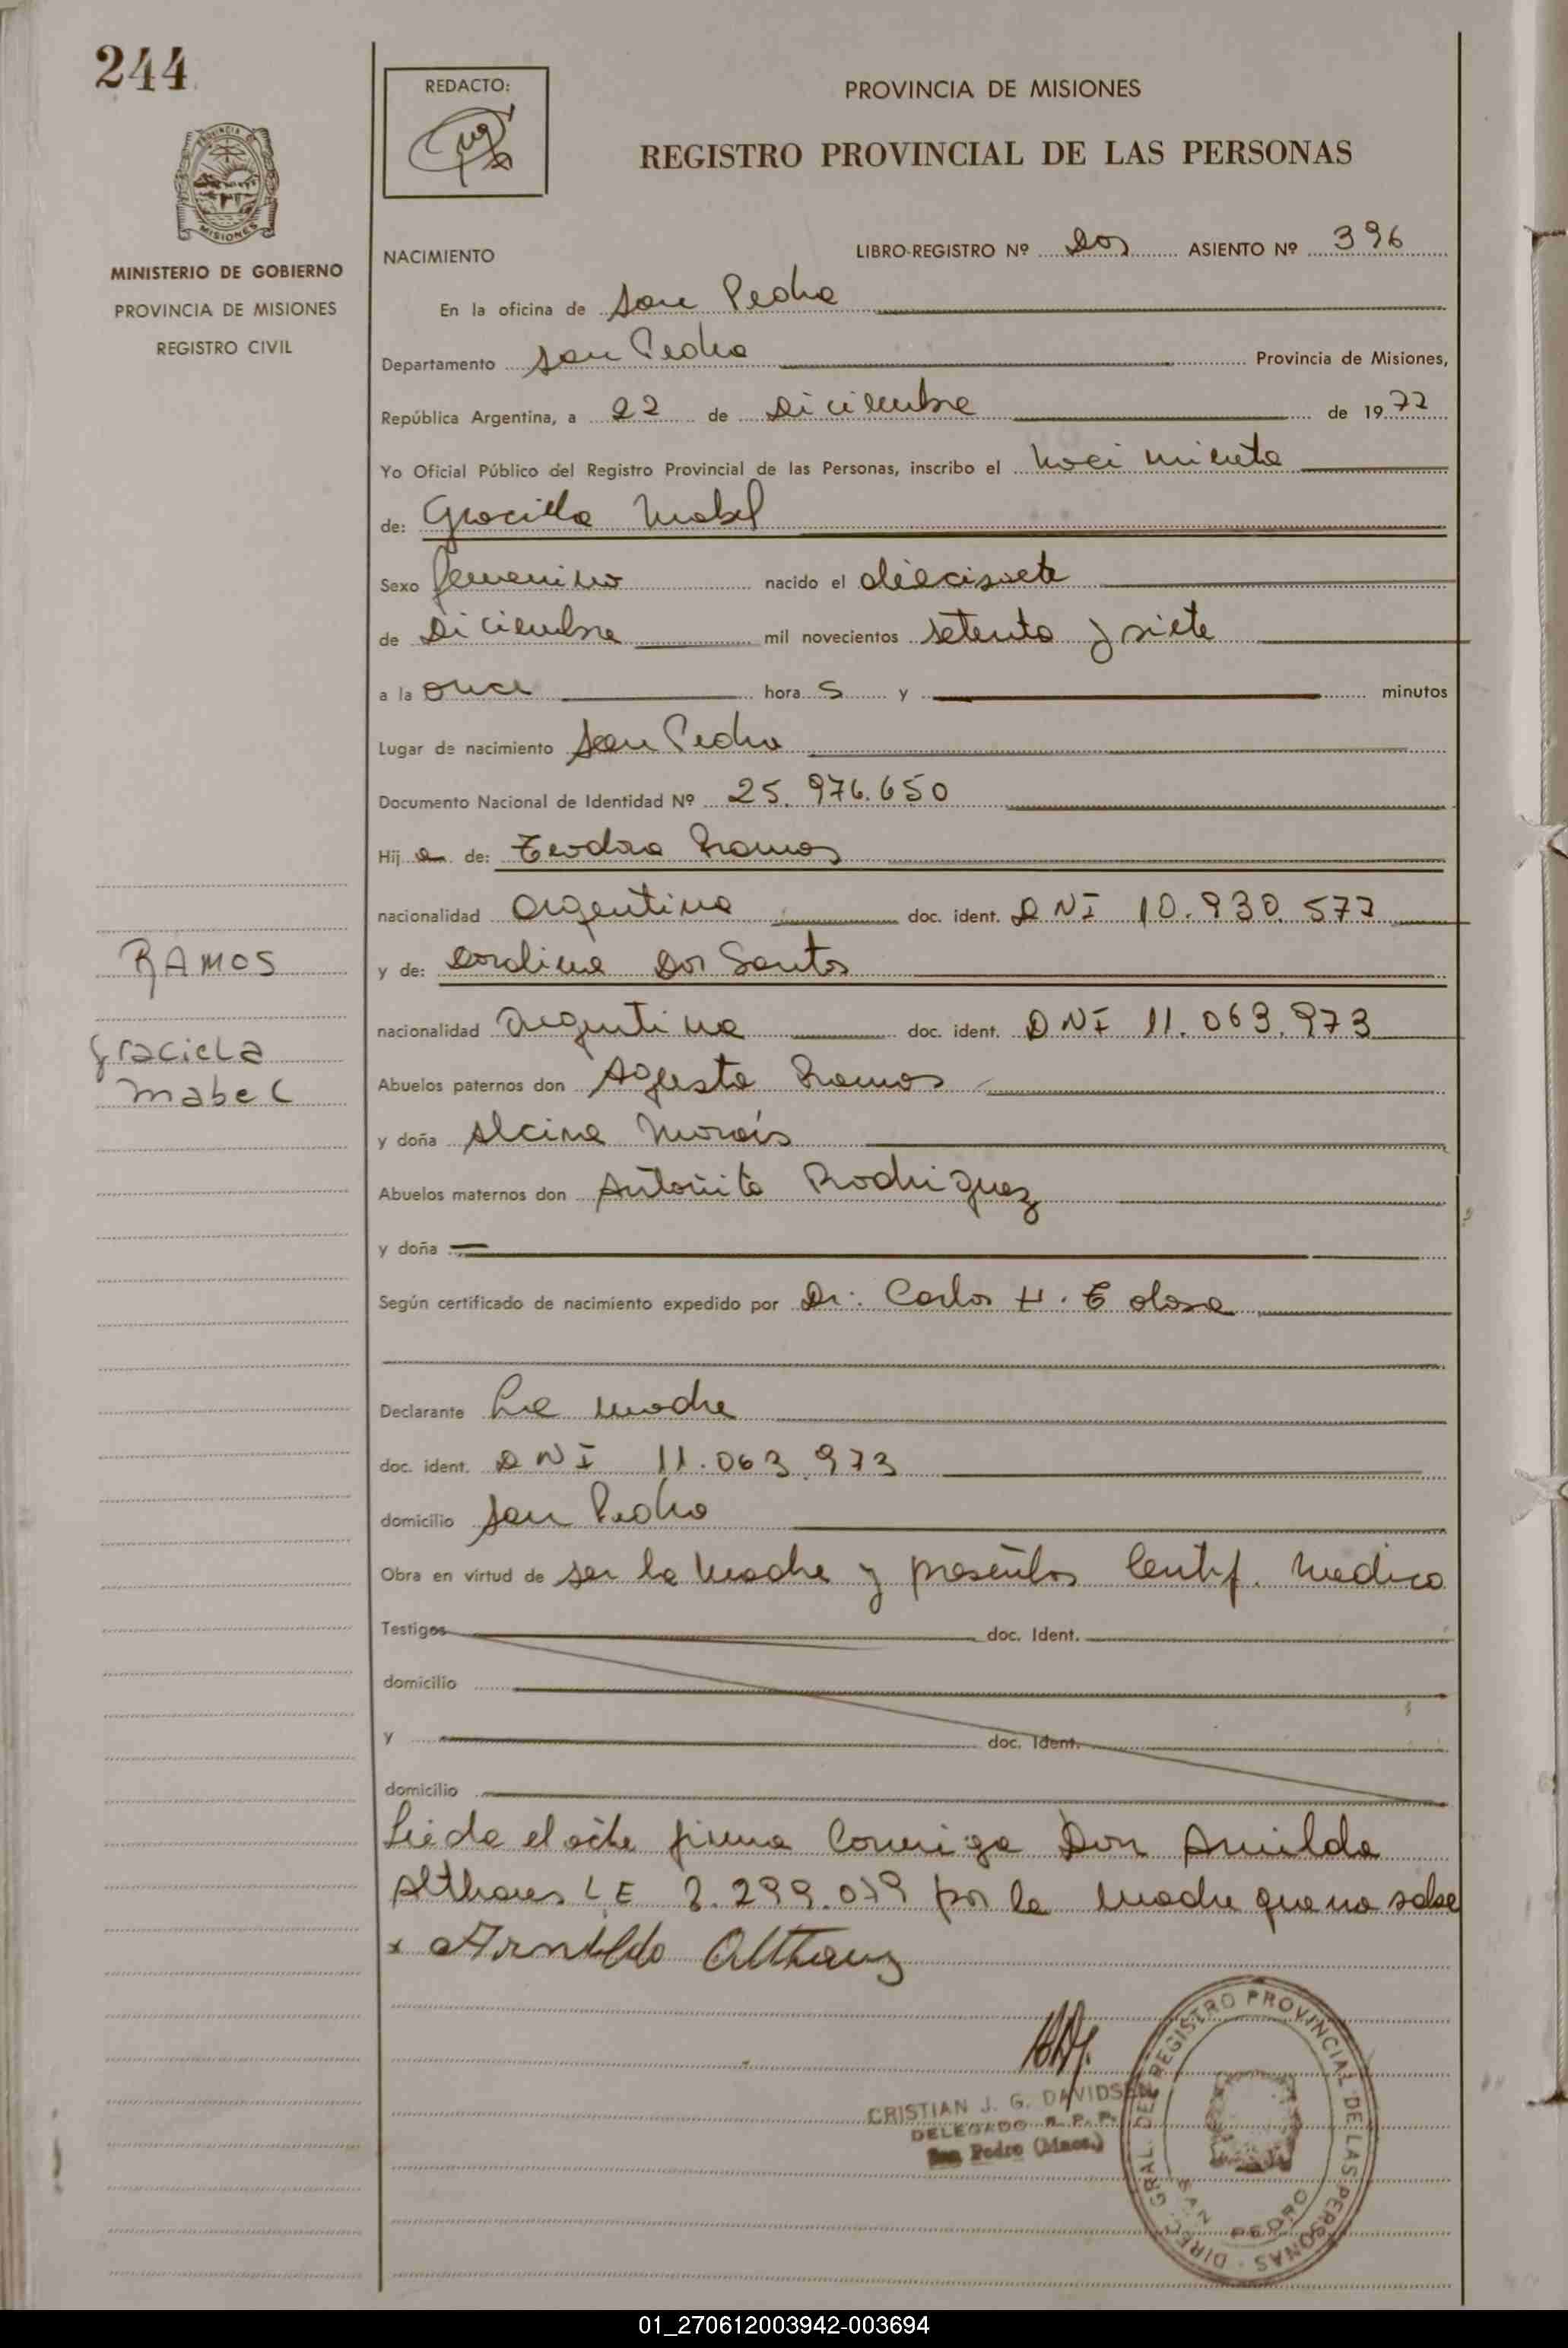 244
REDACTO:
PROVINCIA DE MISIONES
REGISTRO PROVINCIAL DE LAS PERSONAS
PROVINCIA DE
MISIONES
MINISTERIO DE GOBIERNO
PROVINCIA DE MISIONES
REGISTRO CIVIL
NACIMIENTO LIBRO-REGISTRO Nº Dos ASIENTO Nº 396
En la oficina de San Pedro
Departamento San Pedro Provincia de Misiones,
República Argentina, a 22 de Diciembre de 1977
Yo Oficial Público del Registro Provincial de las Personas, inscribo el nacimiento
de: Graciela Mabel
Sexo femenino nacido el diecisiete
de Diciembre mil novecientos setenta y siete
a la once hora s y minutos
Lugar de nacimiento San Pedro
Documento Nacional de Identidad Nº 25.976.650
Hij a de: Teodoro Ramos
nacionalidad argentina doc. ident. DNI 10.930.577
RAMOS
y de: Dos Santos
nacionalidad argentina doc. ident. DNI 11.063.973
Graciela
Mabel
Abuelos paternos don Ramos
y doña Alcina Morais
Abuelos maternos don Rodriguez
y doña
Según certificado de nacimiento expedido por Dr. Carlos H. Tolosa
Declarante La madre
doc. ident. DNI 11.063.973
domicilio San Pedro
Obra en virtud de ser la madre y Certif. medico
Testigos doc. Ident.
domicilio
y doc. Ident.
domicilio
Leida el acta firma conmigo Don Arnildo
LE 2.299.079 por la madre que no sabe
x Arnildo
CRISTIAN J. G. DAVIDSEN
DELEGADO R. P. P.
San Pedro (Mnes.)
DIREC. GRAL DEL REGISTRO PROVINCIAL DE LAS PERSONAS
SAN PEDRO
01_270612003942-003694